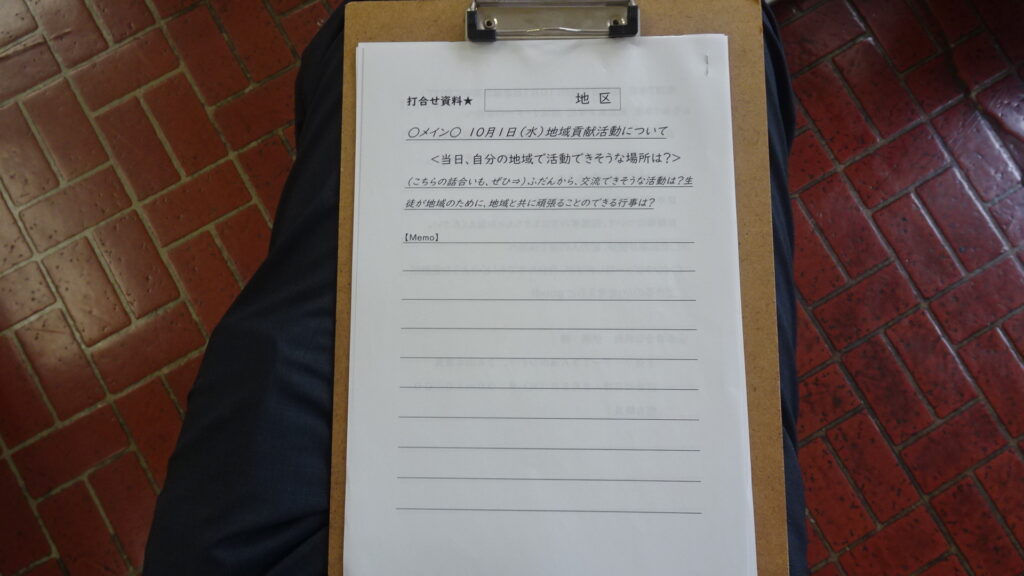 打合せ資料★ 地 区
○メイン○ 10月1日(水)地域貢献活動について
<当日、自分の地域で活動できそうな場所は?>
(こちらの話合いも、ぜひ⇒)ふだんから、交流できそうな活動は?生
徒が地域のために、地域と共に頑張ることのできる行事は?
【Memo】